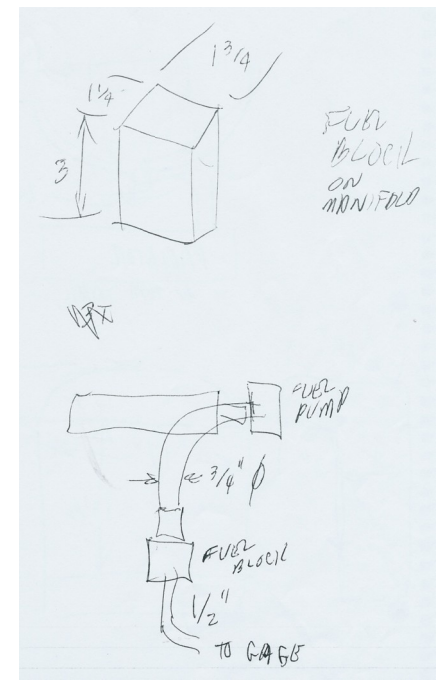 1 3/4
1 1/4
3
FUEL
BLOCK
ON
MANIFOLD
FUEL
PUMP
3/4" ϕ
FUEL
BLOCK
1/2"
TO GAGE